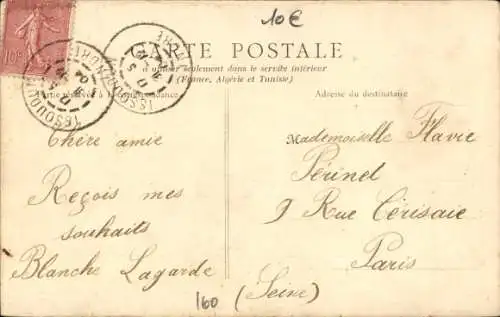 10€
10c
CARTE POSTALE
à utiliser seulement dans le service intérieur
(France, Algérie et Tunisie)
Partie réservée à la correspondance
Adresse du destinataire
ISSOUDUN
INDRE
ISSOUDUN
INDRE
Chère amie
Reçois mes
souhaits
Blanche Lagarde
Mademoiselle Flavie
Périnel
9 Rue Cérisaie
Paris
(Seine)
160